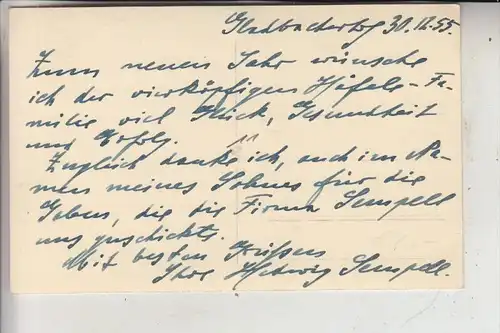 Gladbacherhof 30.12.55.
Zum neuen Jahr wünsche
ich der vierköpfigen Häfele-Fa-
milie viel Glück, Gesundheit
und Erfolg.
Zugleich danke ich, auch im Na-
men meines Sohnes für die
Gaben, die die Firma Sempell
uns geschickt.
Mit besten Grüssen
Ihre Hedwig Sempell.